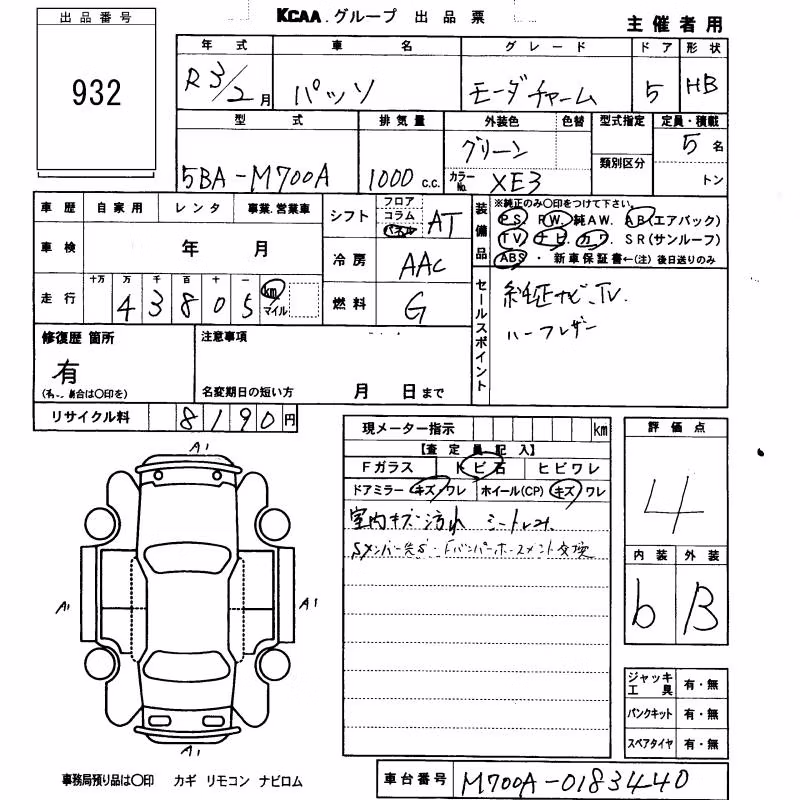 KCAA.グループ 出品票
主催者用
出品番号
932
年式 車名 グレード ドア 形状
R3/2月 パッソ モーダチャーム 5 HB
型式 排気量 外装色 色替 型式指定 定員・積載
5BA-M700A 1000 c.c. グリーン 類別区分 5名
カラーNo. XE3 トン
車歴 自家用 レンタ 事業.営業車
車検 年 月
走行 十万 万 千 百 十 一
4 3 8 0 5 km マイル
シフト フロア コラム パネル AT
冷房 AAC
燃料 G
装備品
※純正のみ〇印をつけて下さい。
P.S. P.W. 純AW. A.B(エアバック)
TV. ナビ. カワ. S R(サンルーフ)
ABS ・ 新車保証書←(注) 後日送りのみ
セールスポイント
純正ナビ、TV.
ハーフレザー
修復歴 箇所
有
注意事項
名変期日の短い方 月 日まで
リサイクル料 8 1 9 0 円
現メーター指示 km
【査定員記入】
Fガラス トビ石 ヒビワレ
ドアミラー キズ・ワレ ホイール(CP) キズ・ワレ
室内キズ・汚れ シートしみ
Sメンバー先S・Fバンパーホースメント交換
評価点
4
内装 外装
b B
A1
A1
A1
A1
ジャッキ工具 有・無
パンクキット 有・無
スペアタイヤ 有・無
事務局預り品は〇印 カギ リモコン ナビロム
車台番号 M700A-0183440